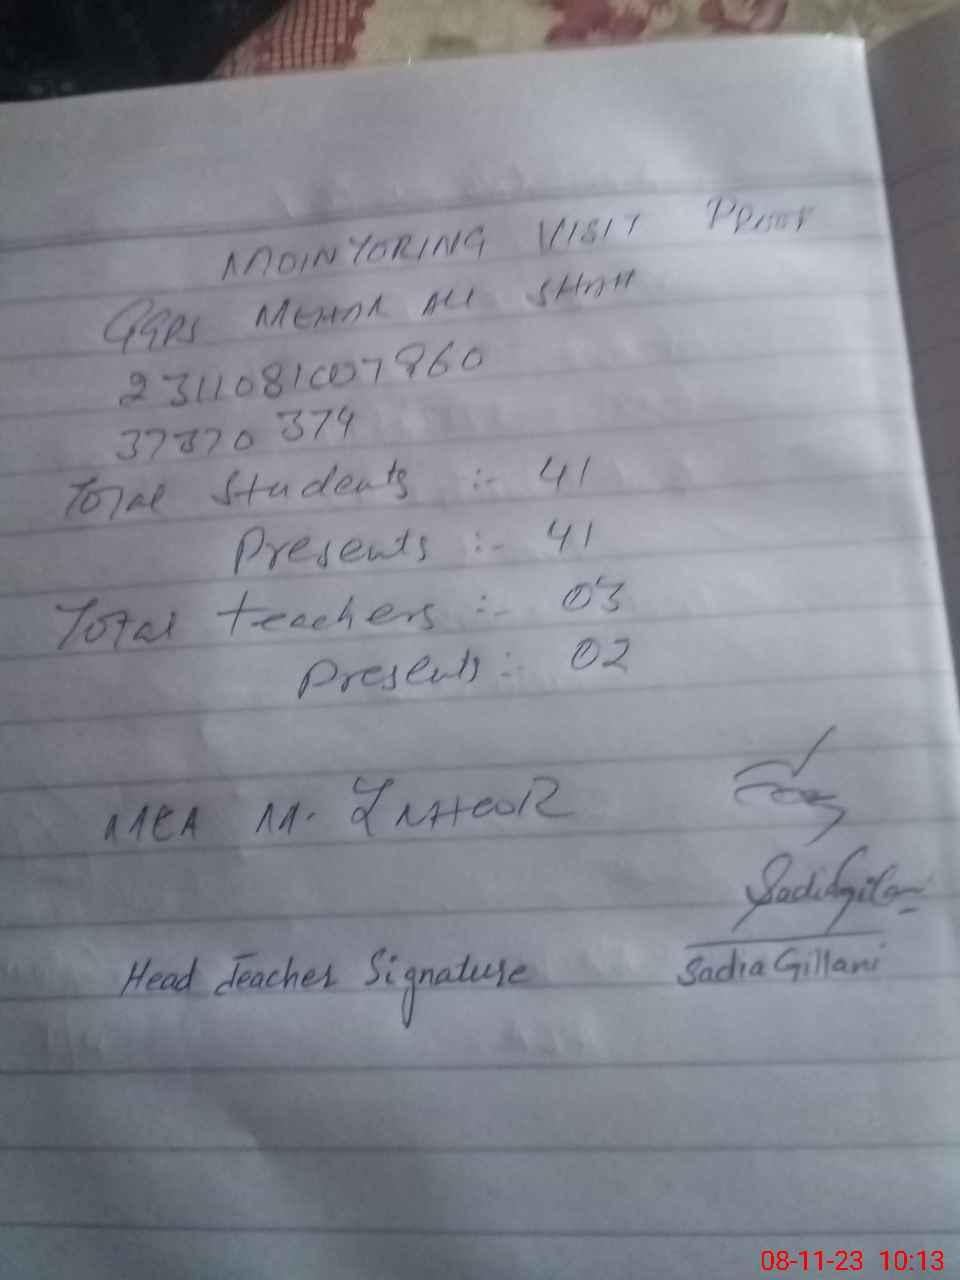 MOINYORING VISIT PROOF
GGPS MEHAR ALI SHAH
37370 374
Total Students :- 41
Presents :- 41
Total teachers :- 03
Presents :- 02
MEA M.
Sadia Gillani
Head Teacher Signature Sadia Gillani
08-11-23 10:13